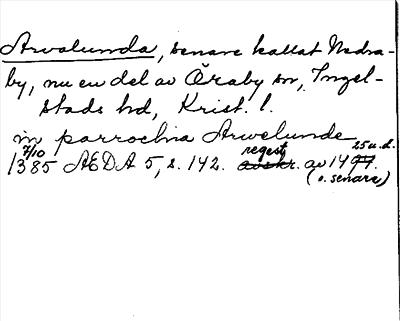 Arvalunda, senare kallat Nedra-
by, nu en del av Öraby sn, Ingel-
stads hd, Krist. l.
in parrochia Arwelunde
7/10 1385 ÆDA 5, s. 142. regest av 14 25 u.d.
(o. senare)